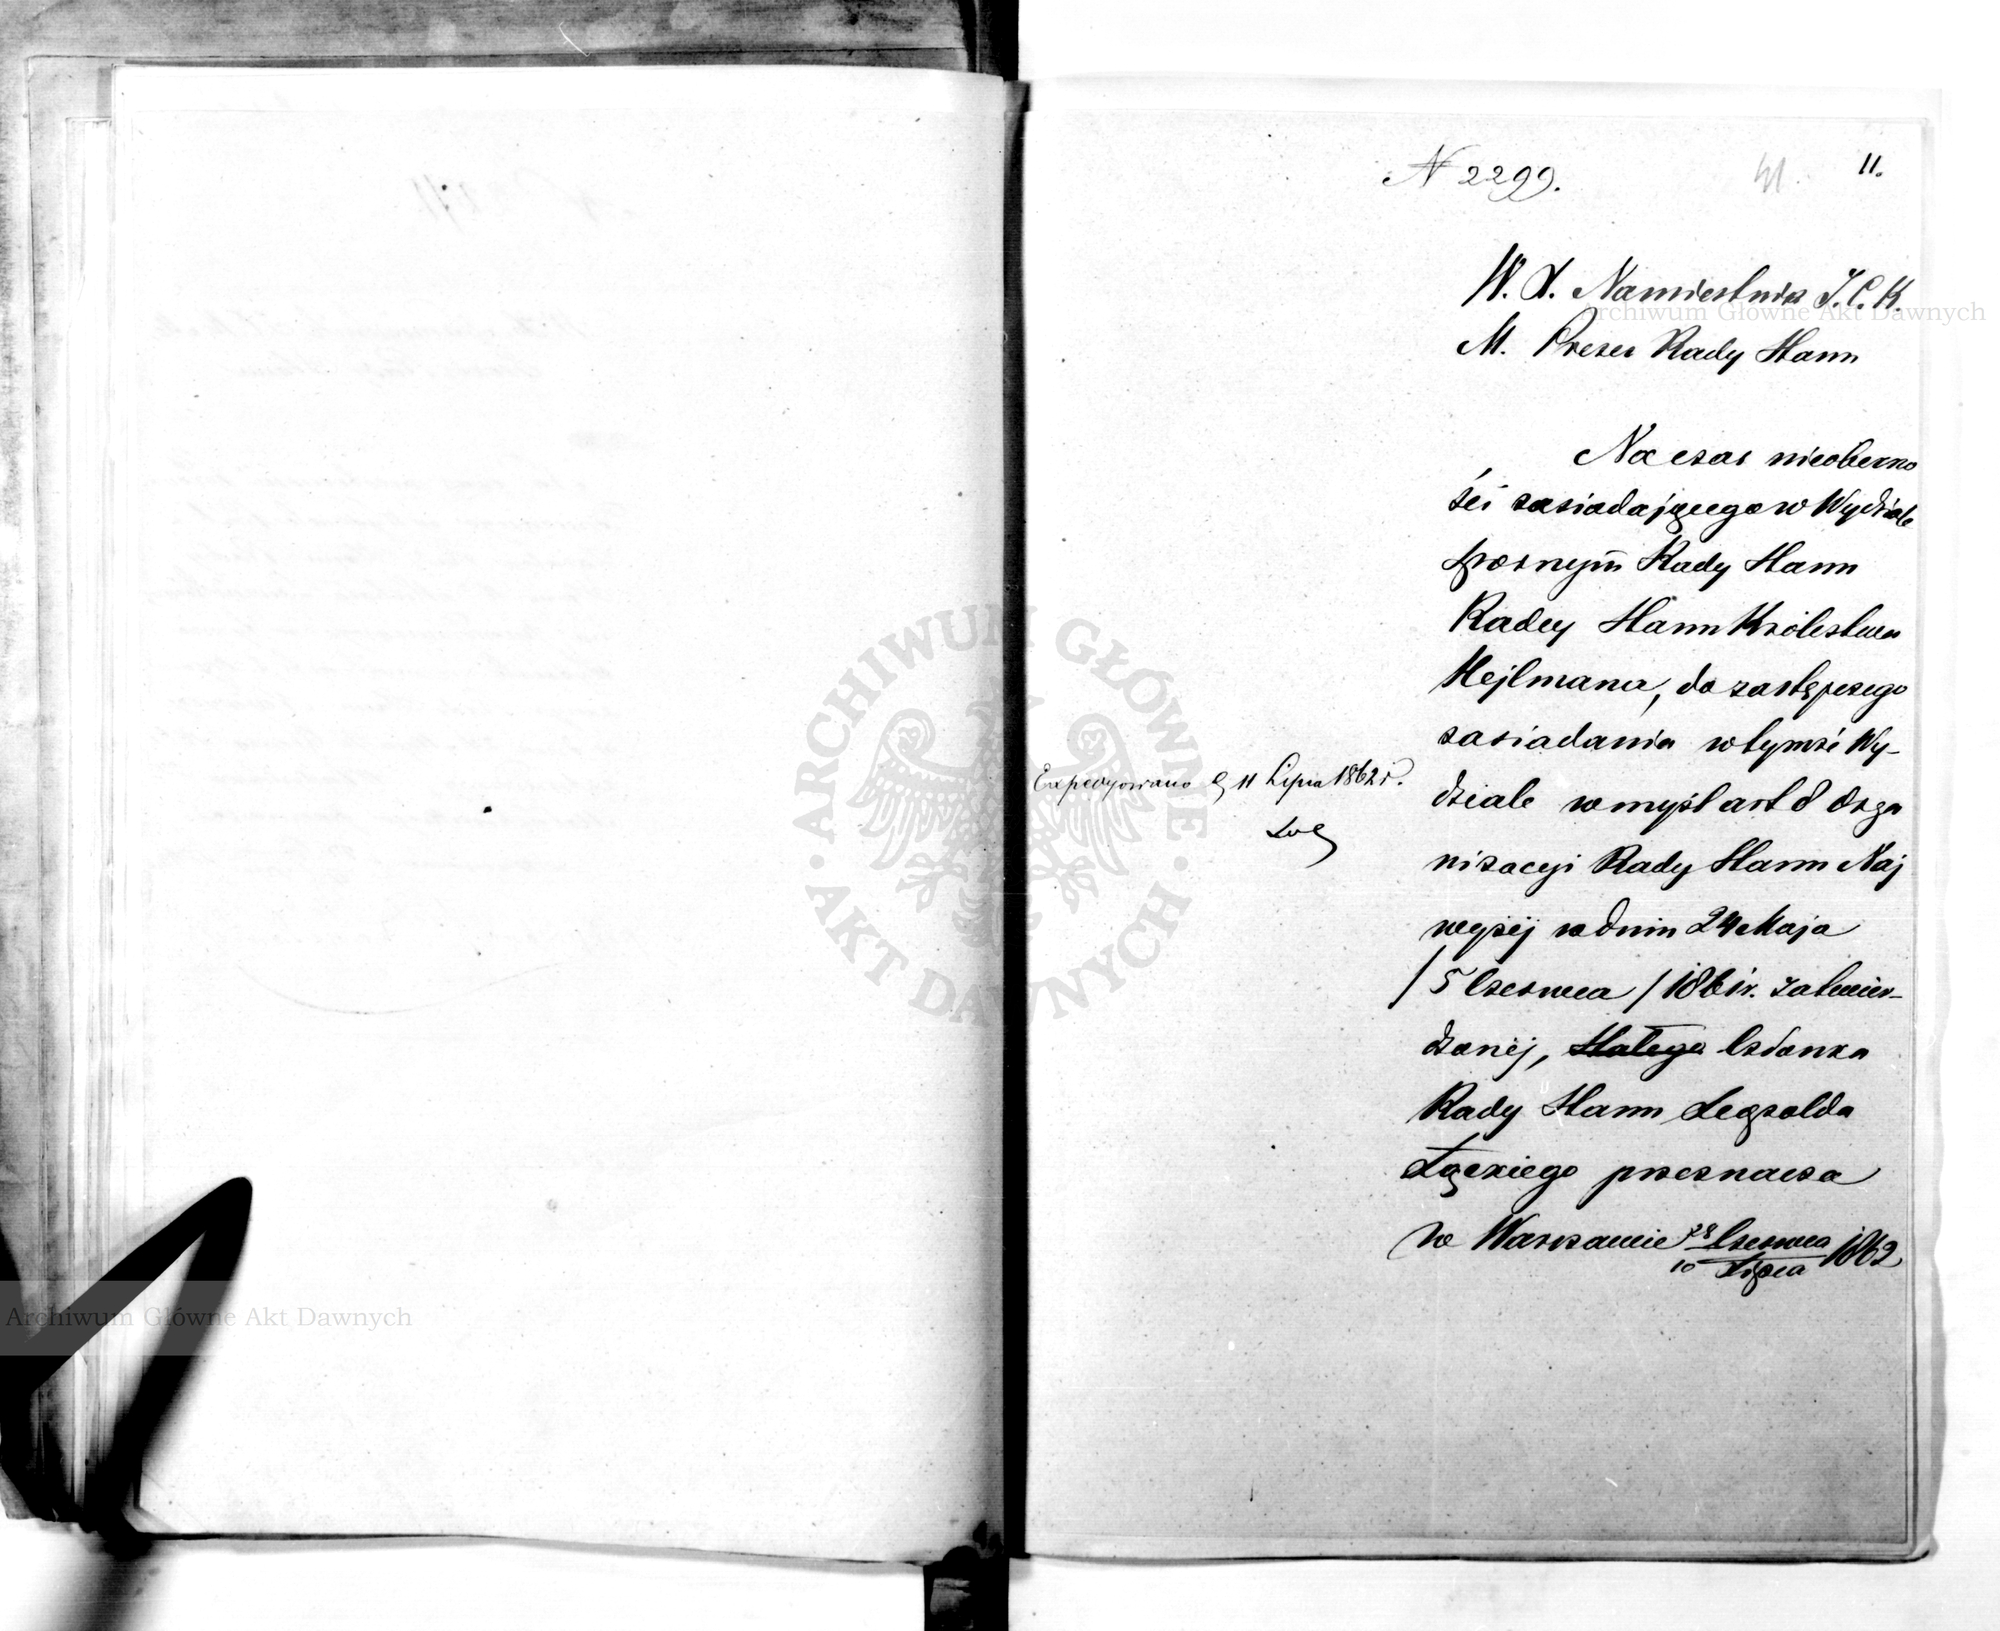 N 2299.
11.
W. X. Namiestnik J. C. K.
M. Prezes Rady Stanu
Na czas nieobecno
ści zasiadającego w Wydziale
Spornym Rady Stanu
Radcy Stanu Królestwa
Hejlmana, do zastępczego
zasiadania w tymże Wy-
dziale w myśl art 8 Orga
nizacyi Rady Stanu Naj
wyżej w dniu 24 Maja
/ 5 Czerwca / 1861 r. zatwier-
dzonéj, Stałego Członka
Rady Stanu Leopolda
Łąckiego przeznacza
w Warszawie 28 Czerwca 1862
10 Lipca
Expedyowano d 11 Lipca 1862 r.
ARCHIWUM GŁÓWNE · AKT DAWNYCH ·
Archiwum Główne Akt Dawnych
Archiwum Główne Akt Dawnych